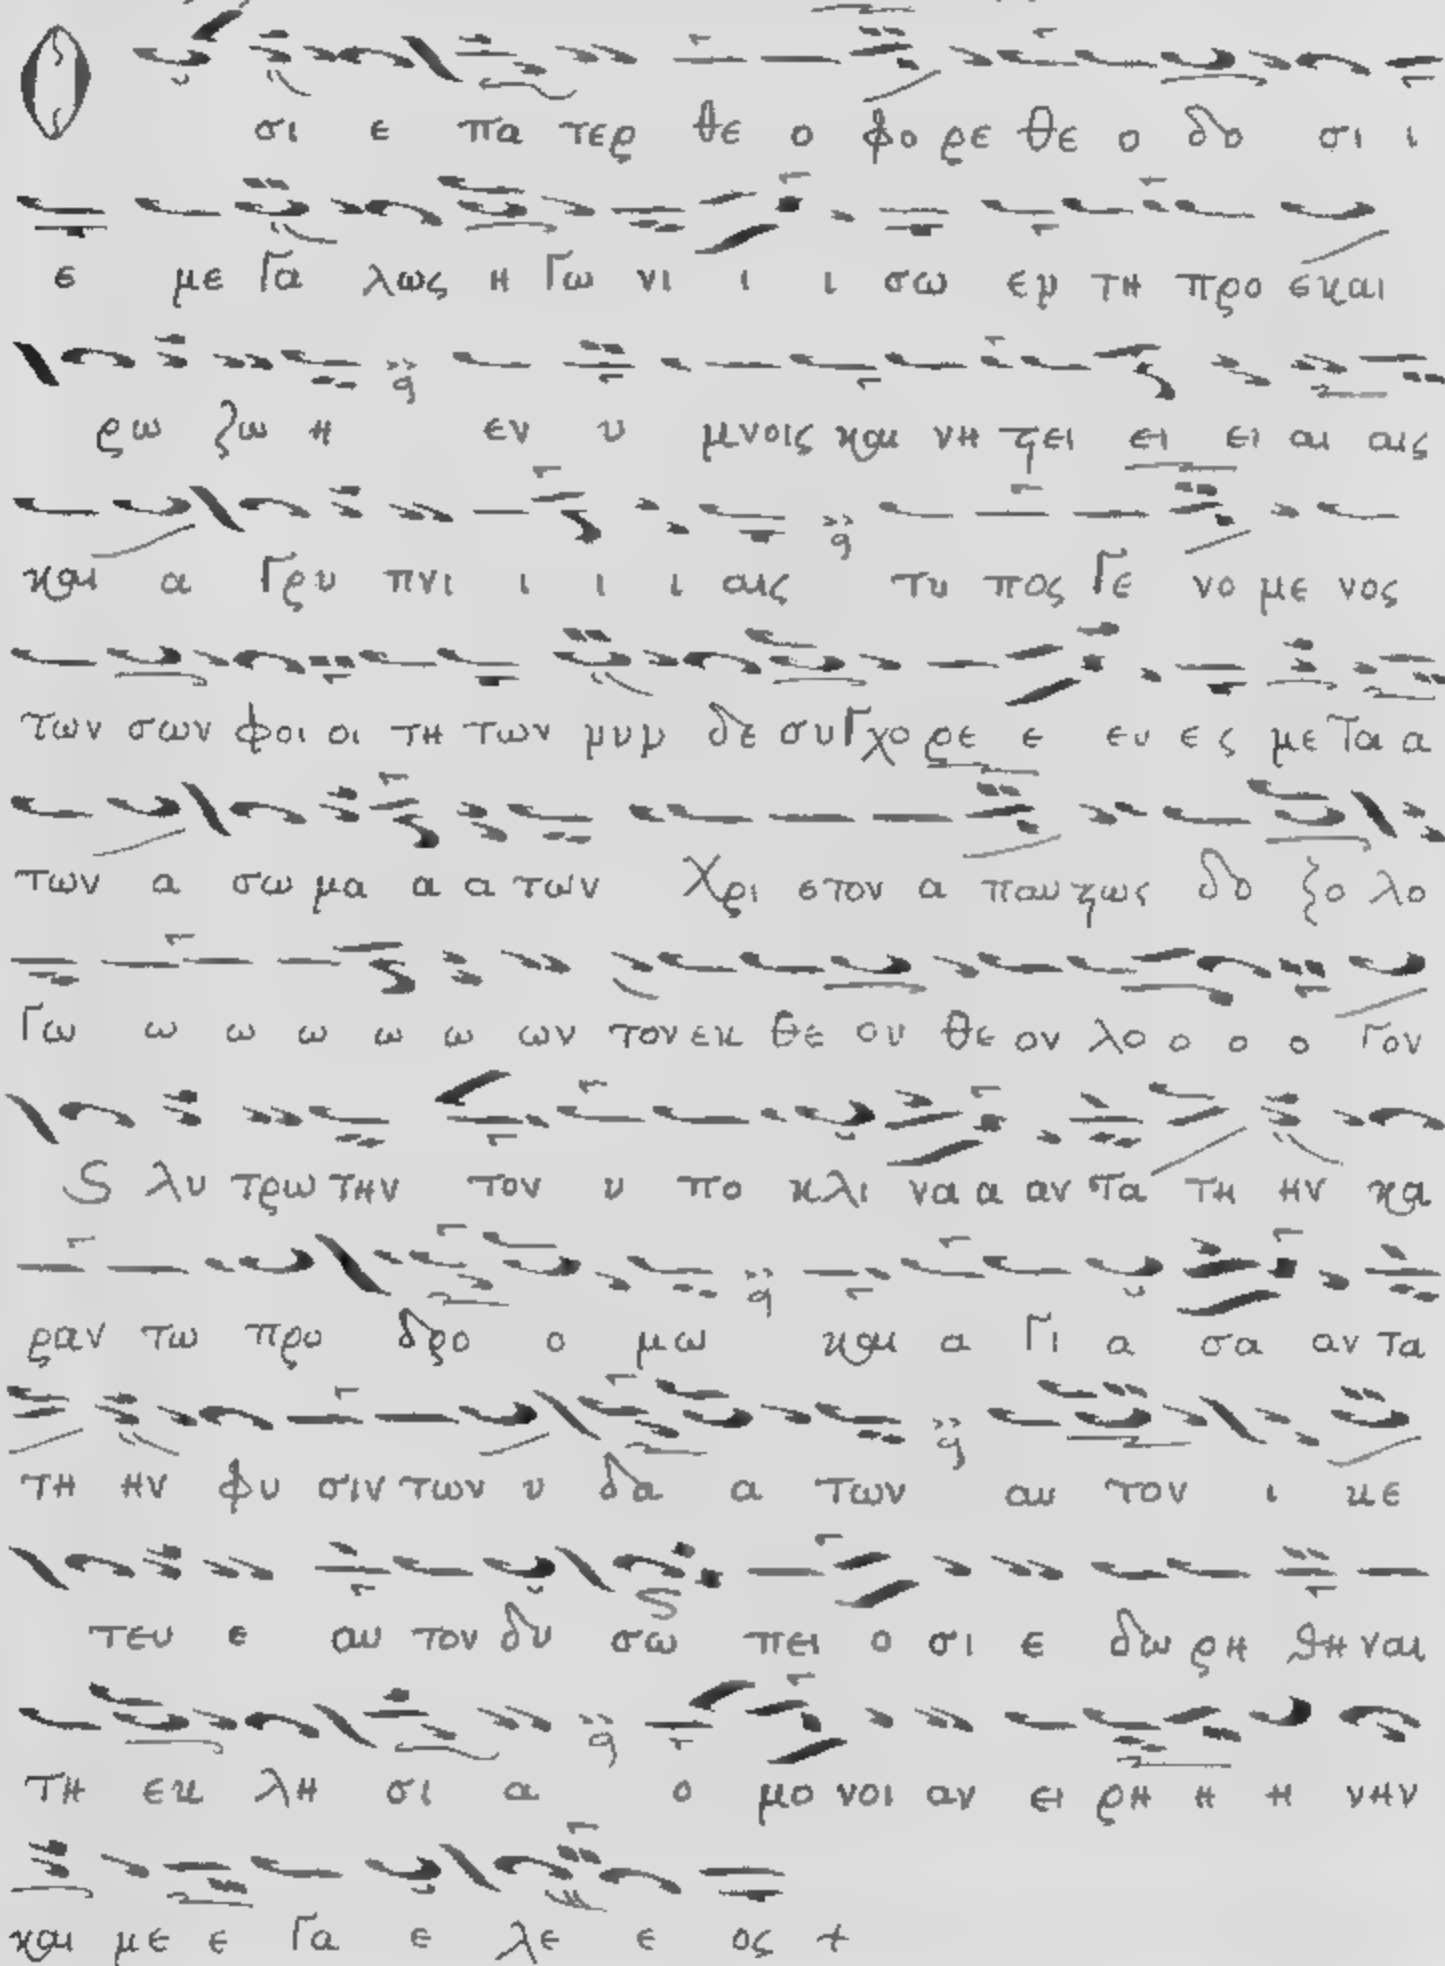 Ο σι ε πα τερ θε ο φο ρε θε ο δο σι ι
ε με γα λως η γω νι ι ι σω εν τη προ σκαι
ρω ζω η εν υ μνοις και νη στει ει ει αι αις
και α γρυ πνι ι ι ι αις τυ πος γε νο με νος
των σων φοι οι τη των νυν δε συγχο ρε ε ευ ε ις με τα α
των α σω μα α α των Χρι στον α παυ στως δο ξο λο
γω ω ω ω ω ω ων τον εκ θε ου θε ον λο ο ο ο γον
ϛ λυ τρω την τον υ πο κλι να α αν τα τη ην κα
ραν τω προ δρο ο μω και α γι α σα αν τα
τη ην φυ σιν των υ δα α των αυ τον ι κε
τευ ε αυ τον δυ σω πει ο σι ε δω ρη θη ναι
τη εκ κλη σι α ο μο νοι αν ει ρη η η νην
και με ε γα ε λε ε ος +